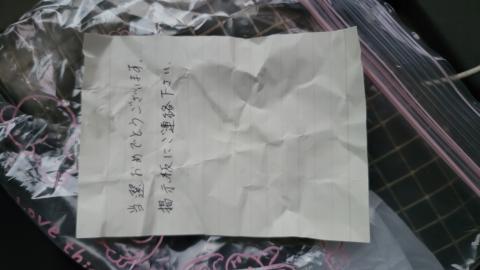 当選おめでとうございます。
掲示板にご連絡下さい